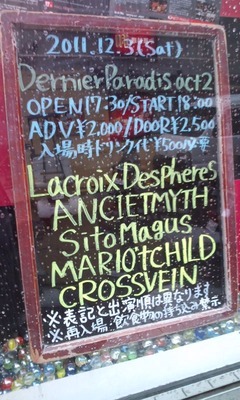 2011.12.3(Sat)
Dernier Paradis act2
OPEN17:30/START18:00
ADV¥2,000/DOOR¥2,500
入場時ドリンク代¥500必要
Lacroix Despheres
ANCIETMYTH
Sito Magus
MARIO†CHILD
CROSSVEIN
※表記と出演順は異なります
※再入場、飲食物の持ち込み禁示